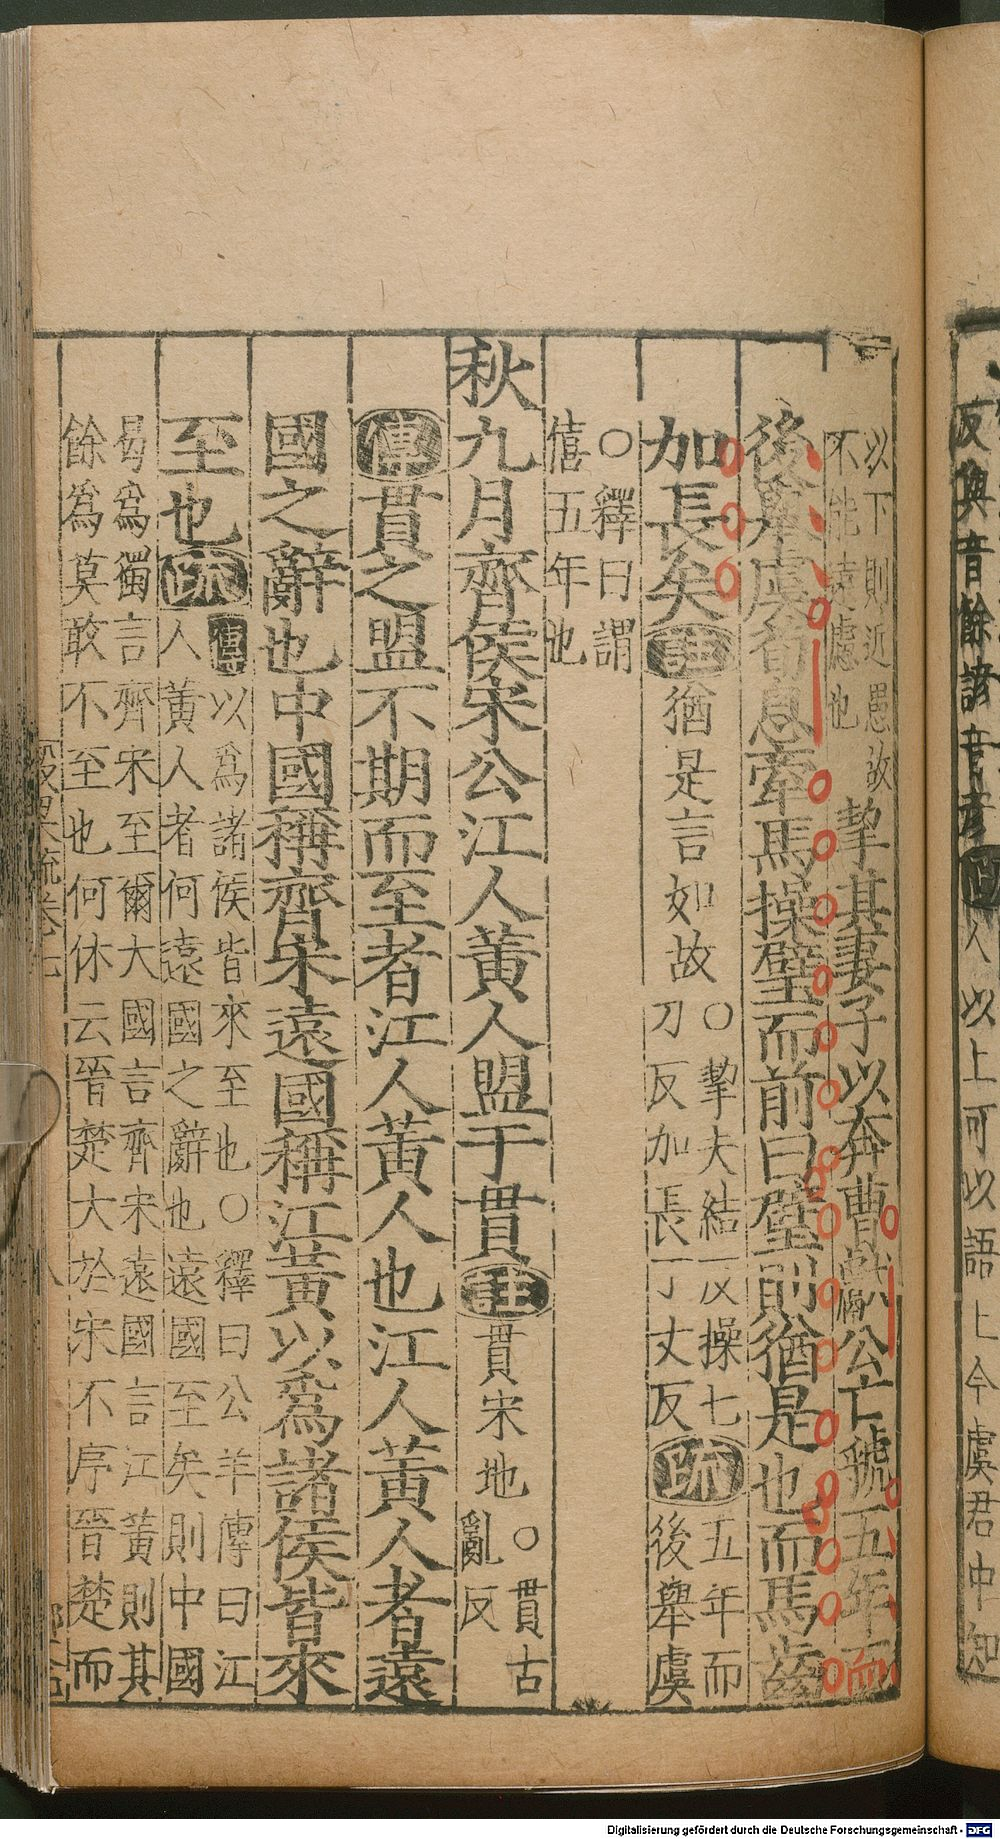 以下則近愚故
不能遠慮也
挈其妻子以奔曹獻公亡虢五年而
後舉虞荀息牽馬操璧而前曰璧則猶是也而馬齒
加長矣註猶是言如故
○挈夫結反操七
刀反加長丁丈反
疏五年而
後舉虞
○釋曰謂
僖五年也
秋九月齊侯宋公江人黃人盟于貫註貫宋地
○貫古
亂反
傳貫之盟不期而至者江人黃人也江人黃人者遠
國之辭也中國稱齊宋遠國稱江黃以爲諸侯皆來
至也疏
傳以爲諸侯皆來至也○釋曰公羊傳曰江
人黃人者何遠國之辭也遠國至矣則中國
曷爲獨言齊宋至爾大國言齊宋遠國言江黃則其
餘爲莫敢不至也何休云晉楚大於宋不序晉楚而
穀梁疏卷七
八
反與音餘諺音彥疏
人以上可以語上今虞君中知
Digitalisierung gefördert durch die Deutsche Forschungsgemeinschaft - DFG